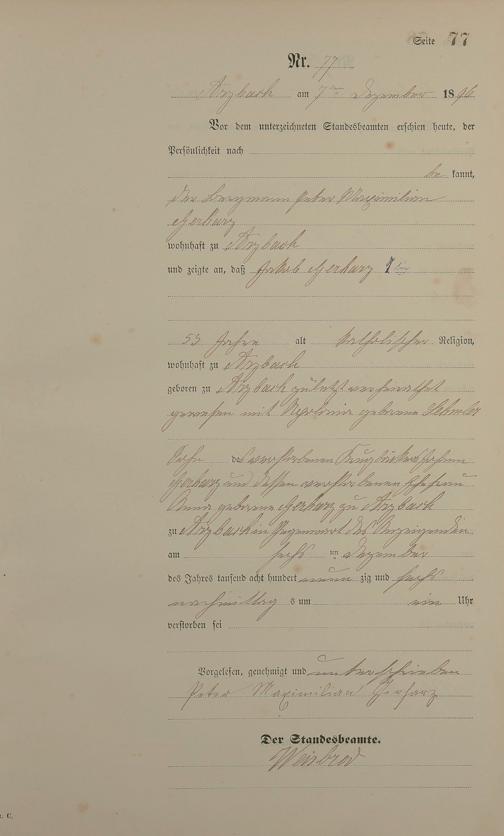 Seite 77
Nr. 77
Arzbach am 7ten Dezember 1896
Vor dem unterzeichneten Standesbeamten erschien heute, der
Persönlichkeit nach
be kannt,
der Bergmann Peter Maximilian
Gerharz
wohnhaft zu Arzbach
und zeigte an, daß Jakob Gerharz
53 Jahre alt katholischer Religion,
wohnhaft zu Arzbach
geboren zu Arzbach zuletzt verheirathet
gewesen mit Apolonia geborene
Sohn des verstorbenen Krugbäckers Johann
Gerharz und dessen verstorbenen Ehefrau
Anna geborene Gerharz zu Arzbach
zu Arzbach in Gegenwart des Anzeigenden
am sechs ten Dezember
des Jahres tausend acht hundert neun zig und sechs
nachmittag s um ein Uhr
verstorben sei
Vorgelesen, genehmigt und unterschrieben
Peter Maximilian Gerharz
Der Standesbeamte.
Weisbrod